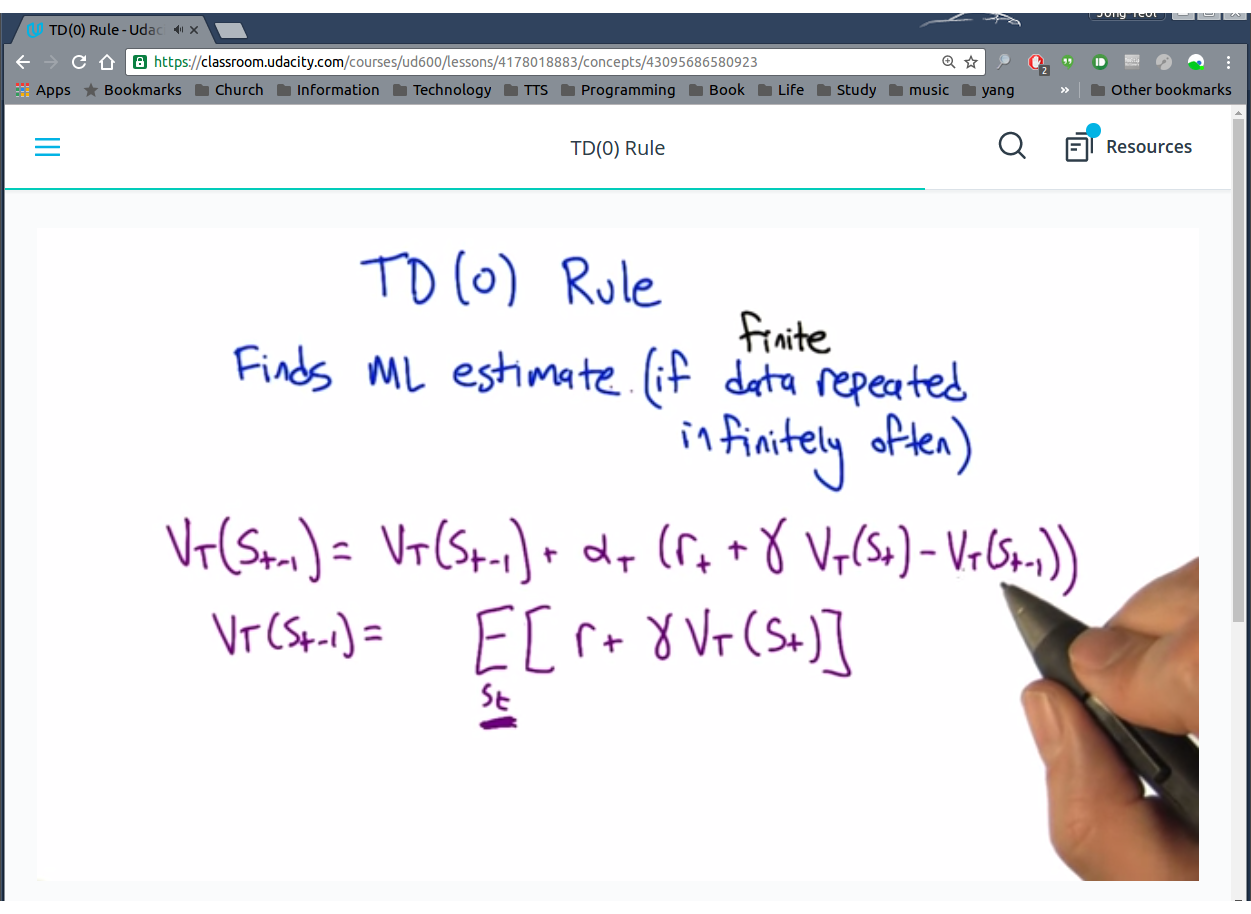 TD(0) Rule - Udac
https://classroom.udacity.com/courses/ud600/lessons/4178018883/concepts/43095686580923
2
Apps Bookmarks Church Information Technology TTS Programming Book Life Study music yang » Other bookmarks
TD(0) Rule
Resources
TD(0) Rule
finite
Finds ML estimate (if data repeated
infinitely often)
V_T(S_{t-1}) = V_T(S_{t-1}) + α_T (r_t + γ V_T(S_t) - V_T(S_{t-1}))
V_T(S_{t-1}) = E [r_t + γ V_T(S_t)]
S_t